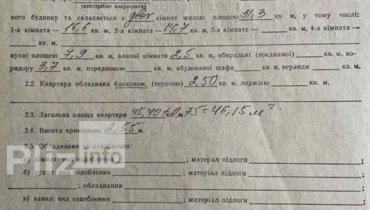 (непотрібне викреслити)
вого будинку та складається з двох кімнат жилою площею 31,3 кв. м, у тому числі:
1-а кімната — кв. м, 2-а кімната — кв. м, 3-я кімната — кв. м, 4-а кімната —
кв. м.
кухні площею 7,9 кв. м, ванної кімнати 2,5 кв. м, вбиральні (поєднаної) кв. м, ко-
ридору 3,7 кв. м, передпокою кв. м, вбудованої шафи кв. м, веранди кв. м.
2.2. Квартира обладнана балконом, (терасою) 2,50 кв. м, лоджією кв. м.
2.3. Загальна площа квартири 45,40 + 0,75 = 46,15 м².
2.4. Висота приміщень м.
2.5. Обладнання та оздоблення:
; матеріал підлоги
оздоблення ; матеріал підлоги
; обладнання
в) ванна: вид оздоблення ; матеріал підлоги